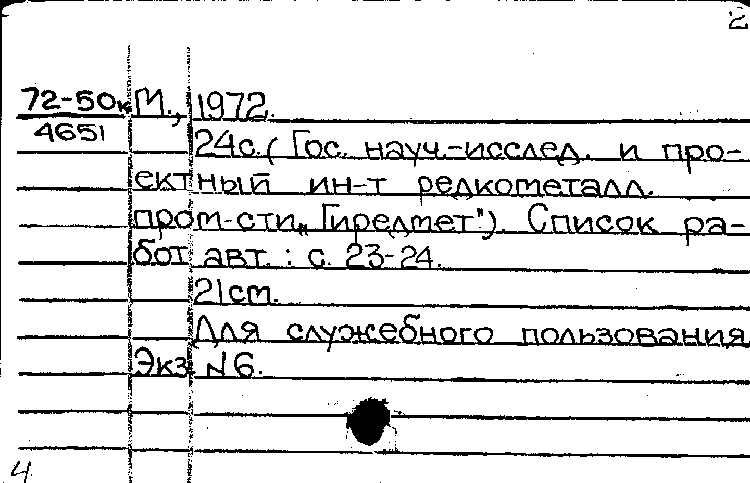 2
72-50к М., 1972.
4651
24с. ( Гос. науч.-исслед. и про-
ектный ин-т редкометалл.
пром-сти „Гиредмет"). Список ра-
бот авт. : с. 23-24.
21см.
Для служебного пользования
Экз N6.
4